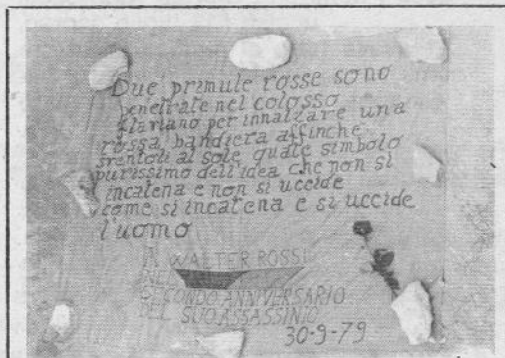 Due primule rosse sono
penetrate nel colosso
Ilariano per innalzare una
rossa bandiera affinchè
srentoli al sole quale simbolo
purissimo dell'idea che non si
incatena e non si uccide
come si incatena e si uccide
l'uomo
WALTER ROSSI
NEL
SECONDO ANNIVERSARIO
DEL SUO ASSASSINIO
30-9-79